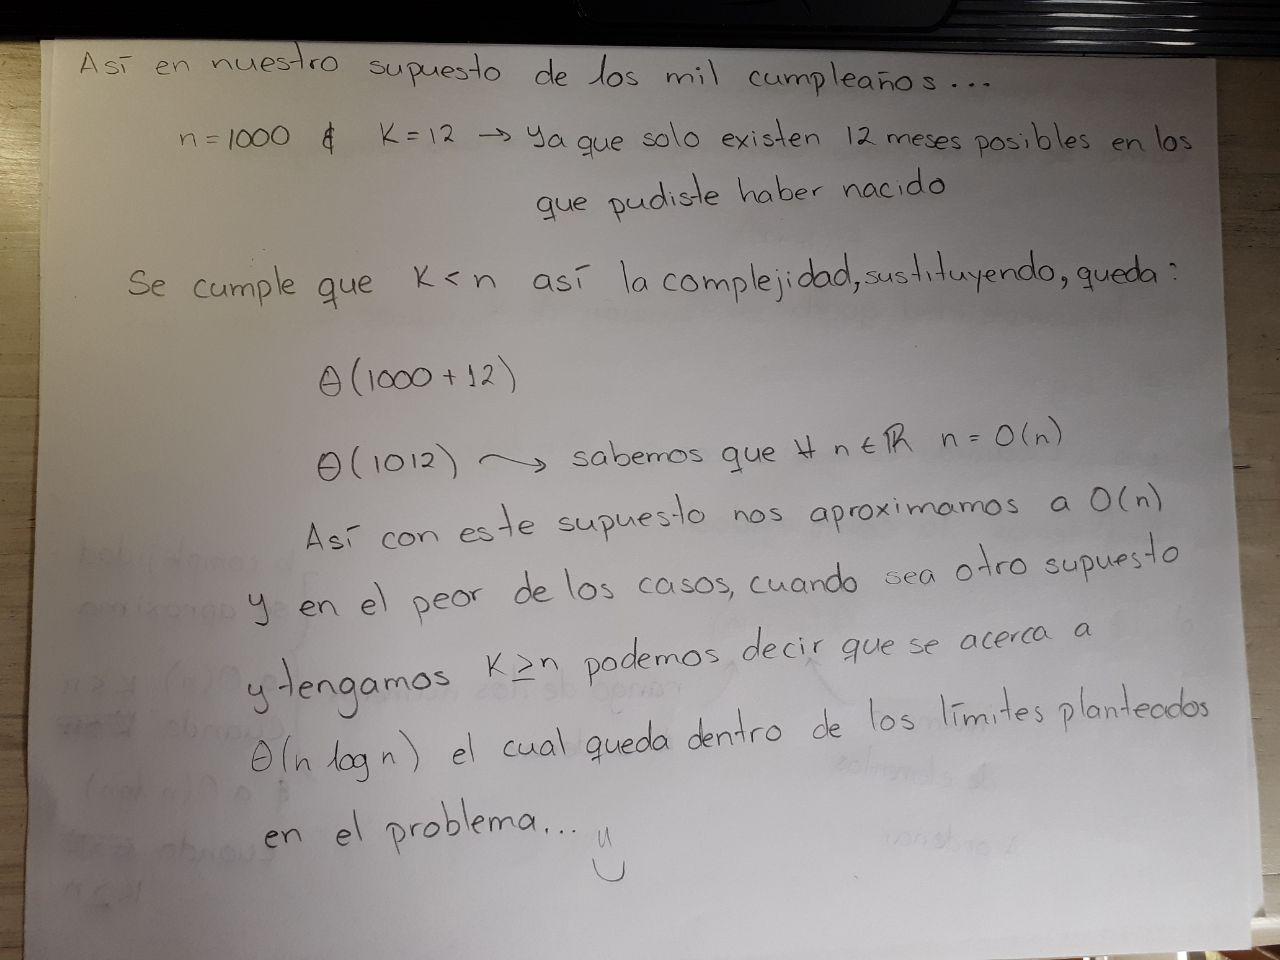 Así en nuestro supuesto de los mil cumpleaños...
n=1000 & K=12 → Ya que solo existen 12 meses posibles en los
que pudiste haber nacido
Se cumple que K<n así la complejidad, sustituyendo, queda:
Θ(1000+12)
Θ(1012) ⟿ sabemos que ∀ n∈ℝ n=O(n)
Así con este supuesto nos aproximamos a O(n)
y en el peor de los casos, cuando sea otro supuesto
y tengamos K≥n podemos decir que se acerca a
Θ(n log n) el cual queda dentro de los límites planteados
en el problema...